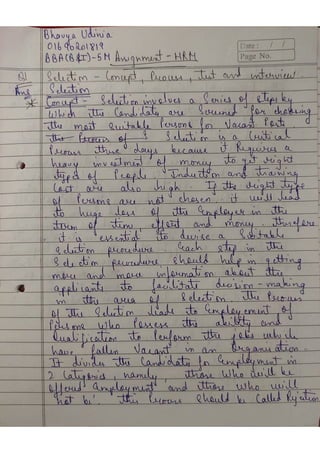 Bhavya Udinia
01690201819
BBA(B&I)-5M Assignment - HRM
Date: / /
Page No.
Q1 Selection - Concept, Process, test and interview
Ans Selection
* Concept - Selection involves a Series of steps by
which the Candidate are Screened for choosing
the most Suitable Persons for Vacant Posts
the Process of Selection is a Critical
Process these days because it Requires a
heavy investment of money to get right
types of People. Induction and training
Cost are also high. If the right type
of Persons are not chosen, it will lead
to huge loss of the Employer in the
term of time, effort and money. therefore
it is essential to devise a Suitable
Selection procedure. Each step in the
Selection procedure should help in getting
more and more information about the
applicants to facilitate decision-making
in the area of Selection. the Process
of the Selection leads to Employement of
Persons who Possess the ability and
Qualification to Perform the jobs which
have fallen Vacant in an Organisation.
It divides the Candidate for Employment in
2 Categories, namely, those who will be
offered Employment and those who will
not be. this Process should be Called Rejection